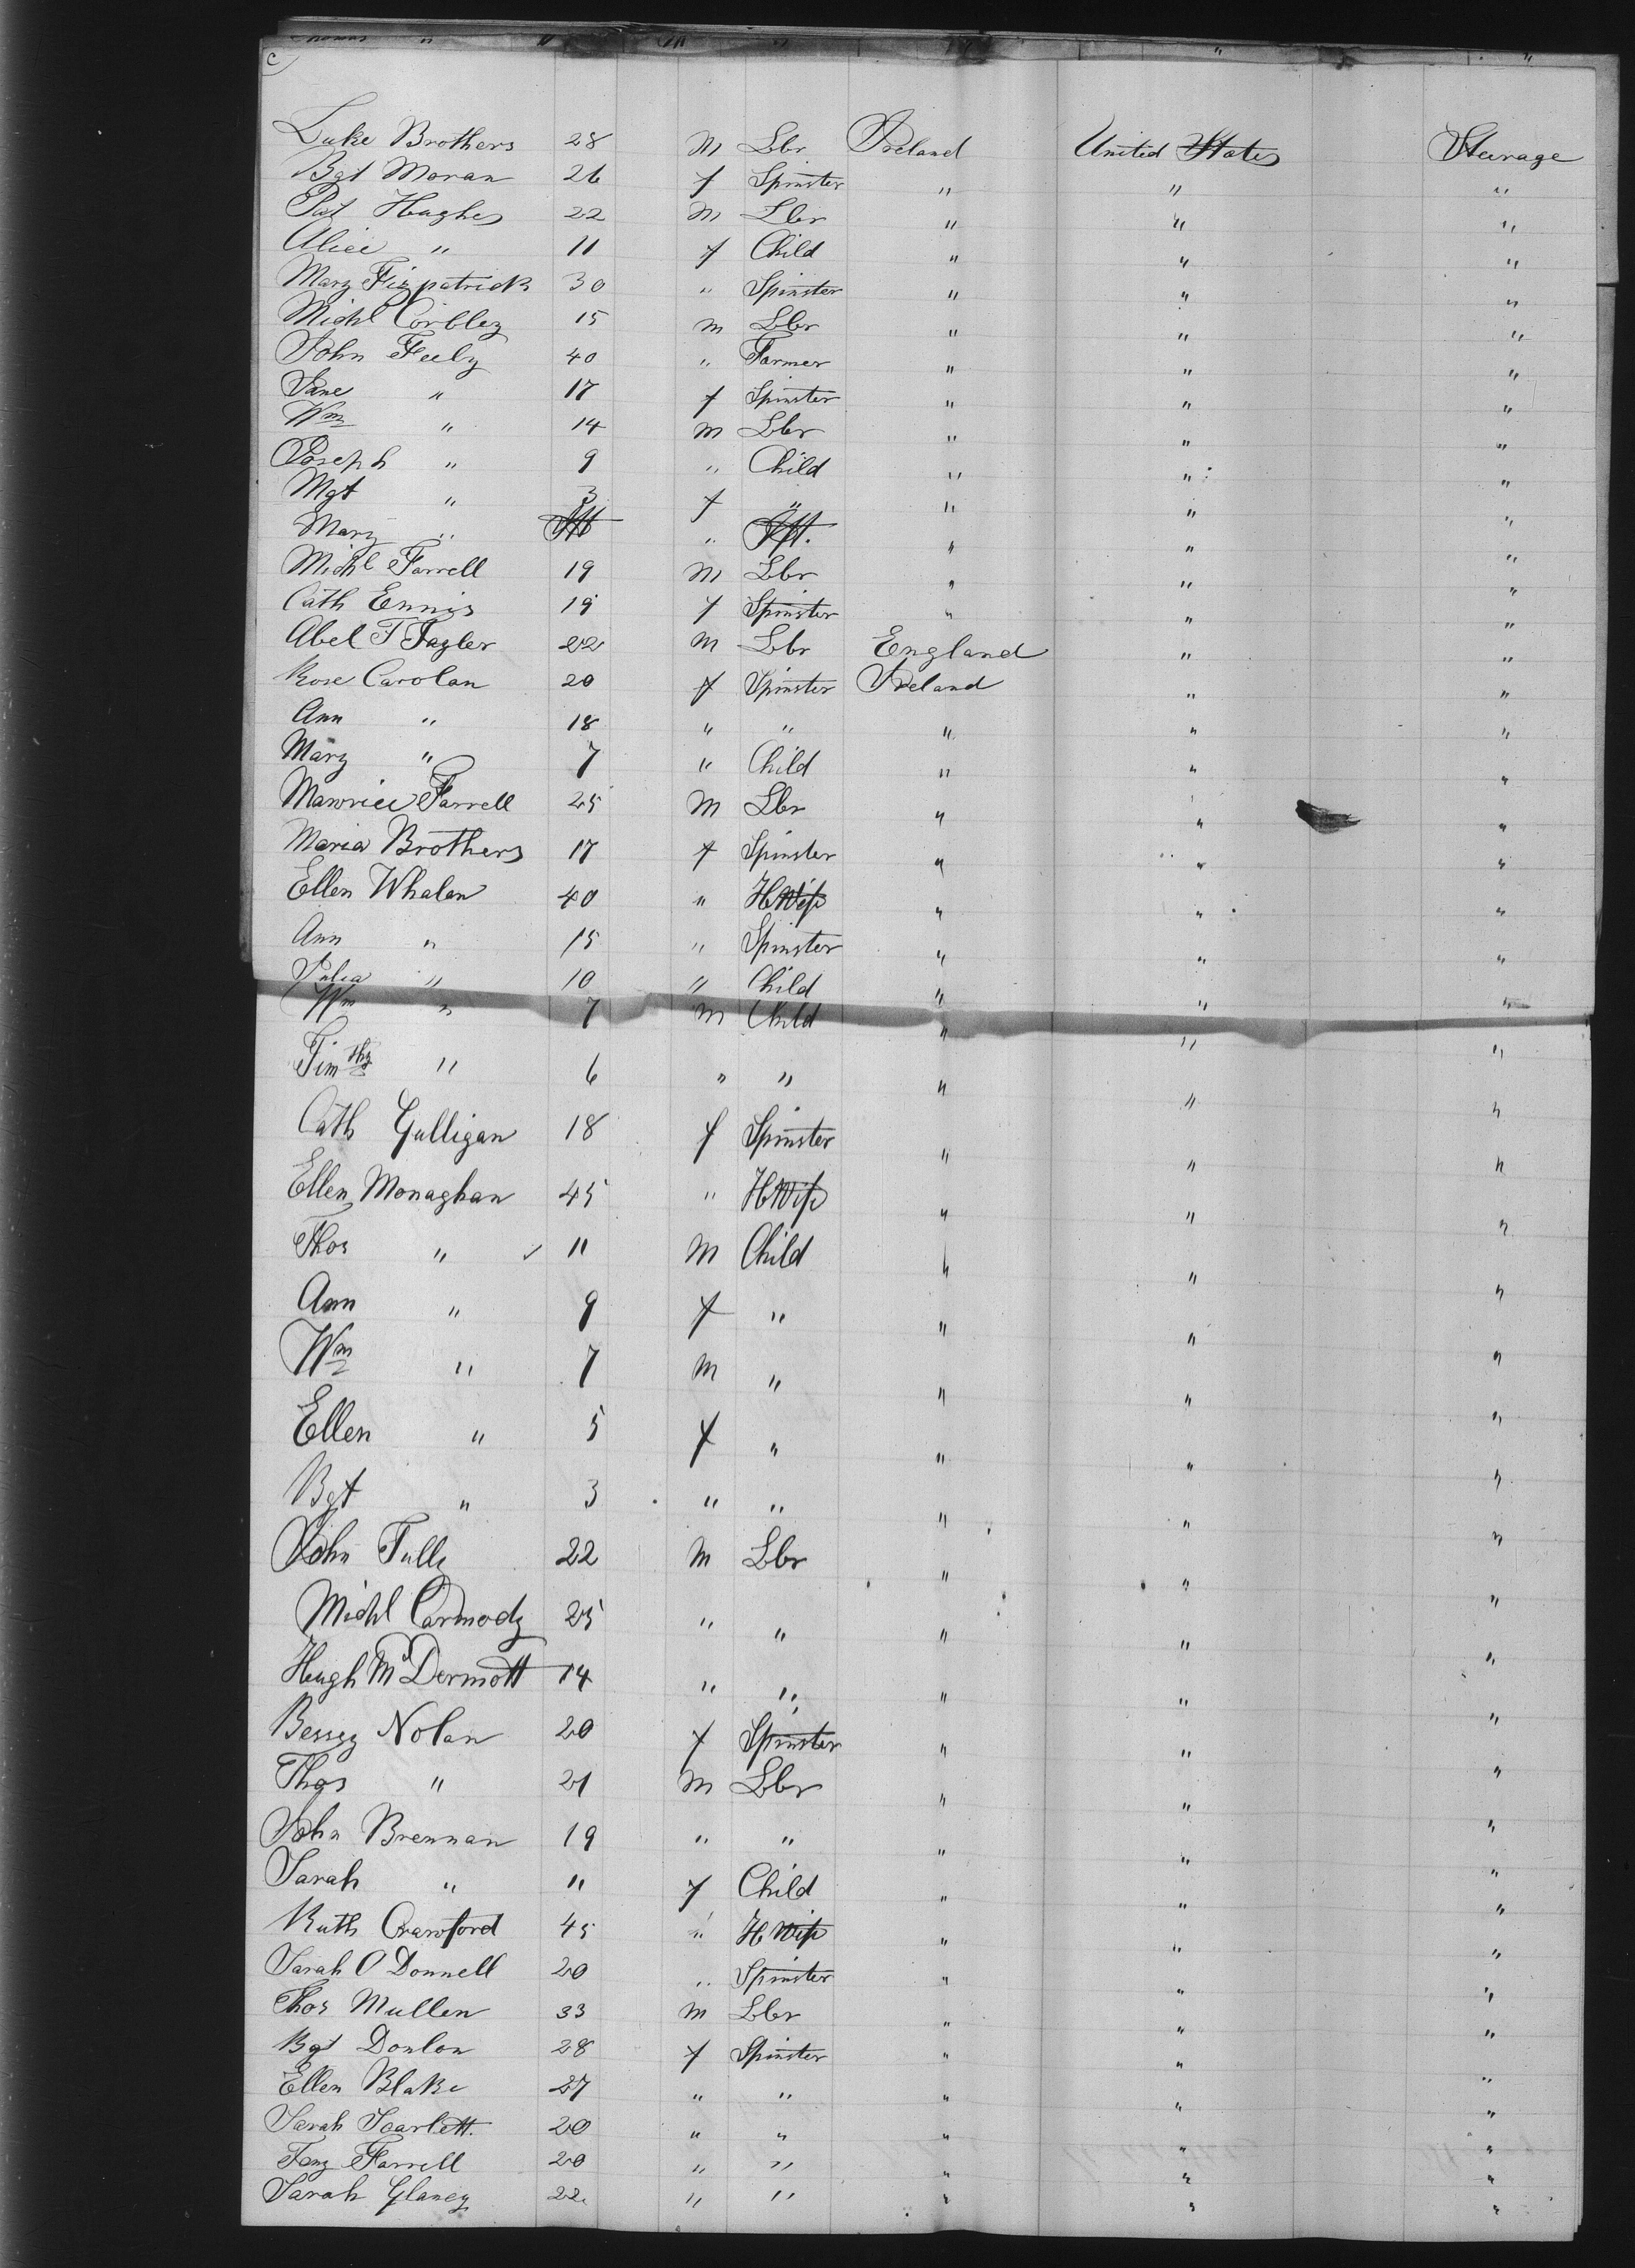 C
Thomas " " " "
Luke Brothers 28 M Lbr Ireland United States Steerage
Bgt Moran 26 f Spinster " " "
Pat Hughes 22 M Lbr " " "
Alice " 11 f Child " " "
Mary Fizpatrick 30 " Spinster " " "
Michl Corbley 15 m Lbr " " "
John Feely 40 " Farmer " " "
Jane " 17 f Spinster " " "
Wm " 14 M Lbr " " "
Joseph " 9 " Child " " "
Mgt " 3 f " " " "
Mary " " " " "
Michl Farrell 19 M Lbr " " "
Cath Ennis 19 f Spinster " " "
Abel T Tayler 22 M Lbr England " "
Rose Carolan 20 f Spinster Ireland " "
Ann " 18 " " " " "
Mary " 7 " Child " " "
Maurice Farrell 25 M Lbr " " "
Maria Brothers 17 f Spinster " " "
Ellen Whalen 40 " HWife " " "
Ann " 15 " Spinster " " "
Julia " 10 " Child " " "
Wm " 7 m Child " " "
Timthy " 6 " " " " "
Cath Gulligan 18 f Spinster " " "
Ellen Monaghan 45 " HWife " " "
Thos " 11 M Child " " "
Ann " 9 f " " " "
Wm " 7 M " " " "
Ellen " 5 f " " " "
Bgt " 3 " " " " "
John Tully 22 M Lbr " " "
Michl Carmody 25 " " " " "
Hugh McDermott 14 " " " " "
Bessy Nolan 20 f Spinster " " "
Thos " 21 M Lbr " " "
John Brennan 19 " " " " "
Sarah " 11 f Child " " "
Ruth Crawford 45 " H Wife " " "
Sarah O Donnell 20 " Spinster " " "
Thos Mullen 33 M Lbr " " "
Bgt Donlon 28 f Spinster " " "
Ellen Blake 27 " " " " "
Sarah Scarlett. 20 " " " " "
Farrell 20 " " " " "
Sarah Glaney 22 " " " " "